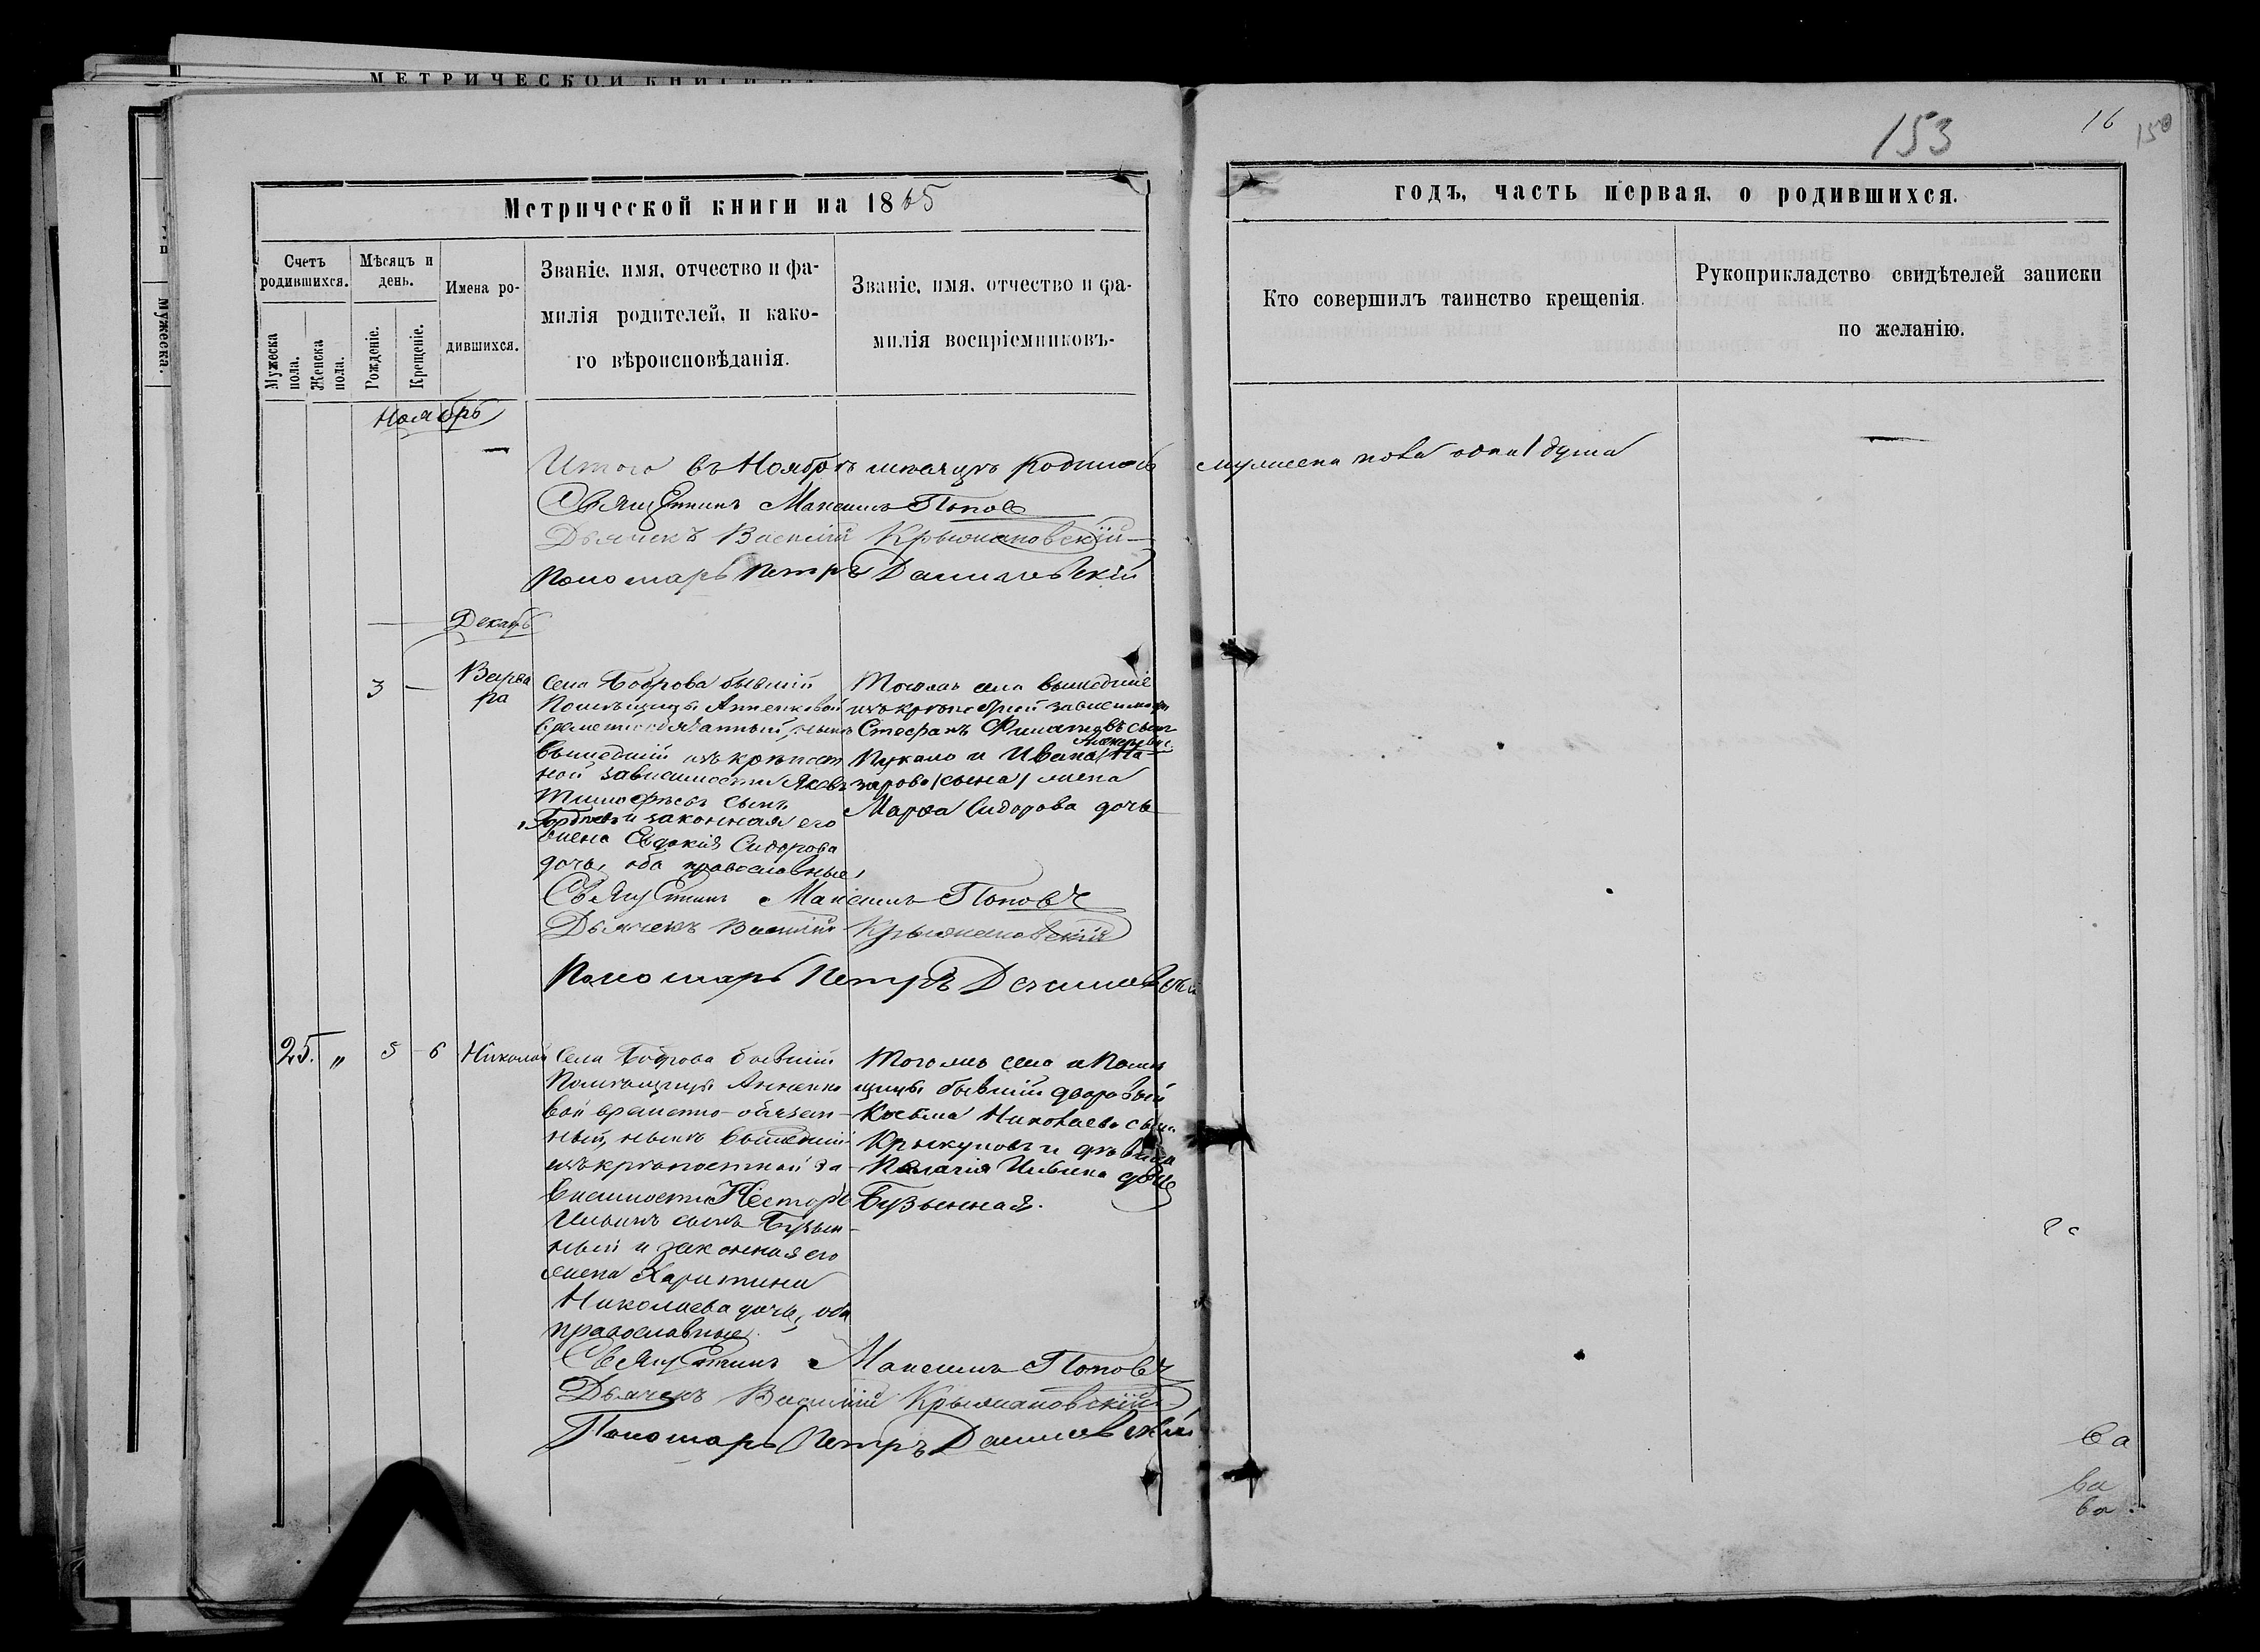 МЕТРИЧЕСКОЙ КНИГИ НА
153
16
150
Метрической книги на 1865
годъ, часть первая, о родившихся.
Счетъ родившихся.
Мужеска пола.
Женска пола.
Мѣсяцъ и день.
Рожденіе.
Крещеніе.
Имена родившихся.
Званіе, имя, отчество и фа-
милія родителей, и како-
го вѣроисповѣданія.
Званіе, имя, отчество и фа-
милія воспріемниковъ.
Кто совершилъ таинство крещенія.
Рукоприкладство свидѣтелей записки
по желанію.
Мужеска.
Ноябрь
Итого въ Ноябрѣ мѣсяцѣ родилось мужеска пола одна 1 душа
Священникъ Максимъ Поповъ
Дьячекъ Василій Крыжановскій
Пономарь Петръ Данилевскій
Декабрь
3 —
Варва
ра
Села Боброва бывшій
Помѣщицы Анненковой
временнообязанный, нынѣ
вышедшій изъ крѣпост
ной зависимости Яковъ
Тимофѣевъ сынъ
Гордѣевъ и законная его
жена Евдокія Сидорова
дочь, оба православные,
Тогожъ села вышедшіе
изъ крѣпостной зависимости
Стефанъ Филатовъ сынъ
и Ивана На-
зарова (сына) жена
Марфа Сидорова дочь
Священникъ Максимъ Поповъ
Дьячекъ Василій Крыжановскій
Пономарь Петръ Данилевскій
25. " 5 6 Николай
Села Боброва бывшій
Помѣщицы Анненко
вой временно-обязан-
ный, нынѣ вышедшій
изъ крѣпостной за-
висимости Несторъ
Ильинъ сынъ Бузын-
ный и законная его
жена Харитина
Николаева дочь, оба
православные.
Тогожъ села и Помѣ
щицы бывшій дворовый
Косьма Николаевъ сынъ
Крыкуновъ и дѣвица
Пелагія Ильина дочь
Бузынная.
Священникъ Максимъ Поповъ
Дьячекъ Василій Крыжановскій
Пономарь Петръ Данилевскій
ва
ва
ва